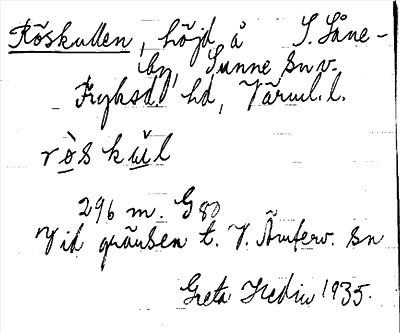 Röskullen, höjd å S. Låne-
by, Sunne sn v.
Fryksd. hd, Värml. l.
rø̀s kŭl
296 m. G80
Vid gränsen t. V. Ämterv. sn
Greta Hedin 1935.